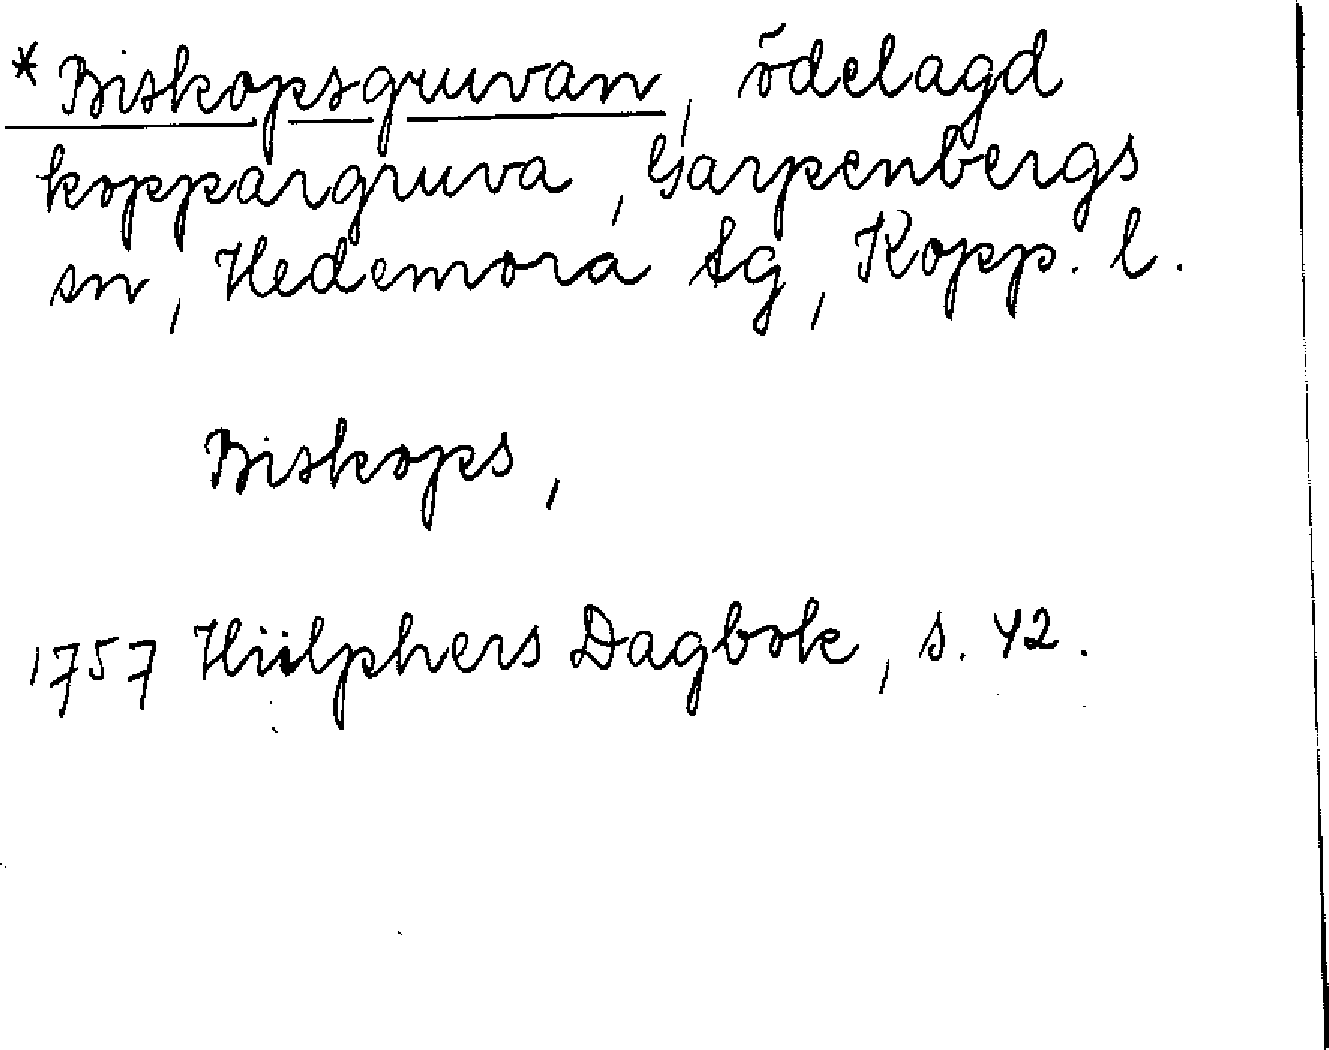 *Biskopsgruvan, ödelagd
koppargruva, Garpenbergs
sn, Hedemora tg, Kopp. l.
Biskops,
1757 Hülphers Dagbok, s. 42.